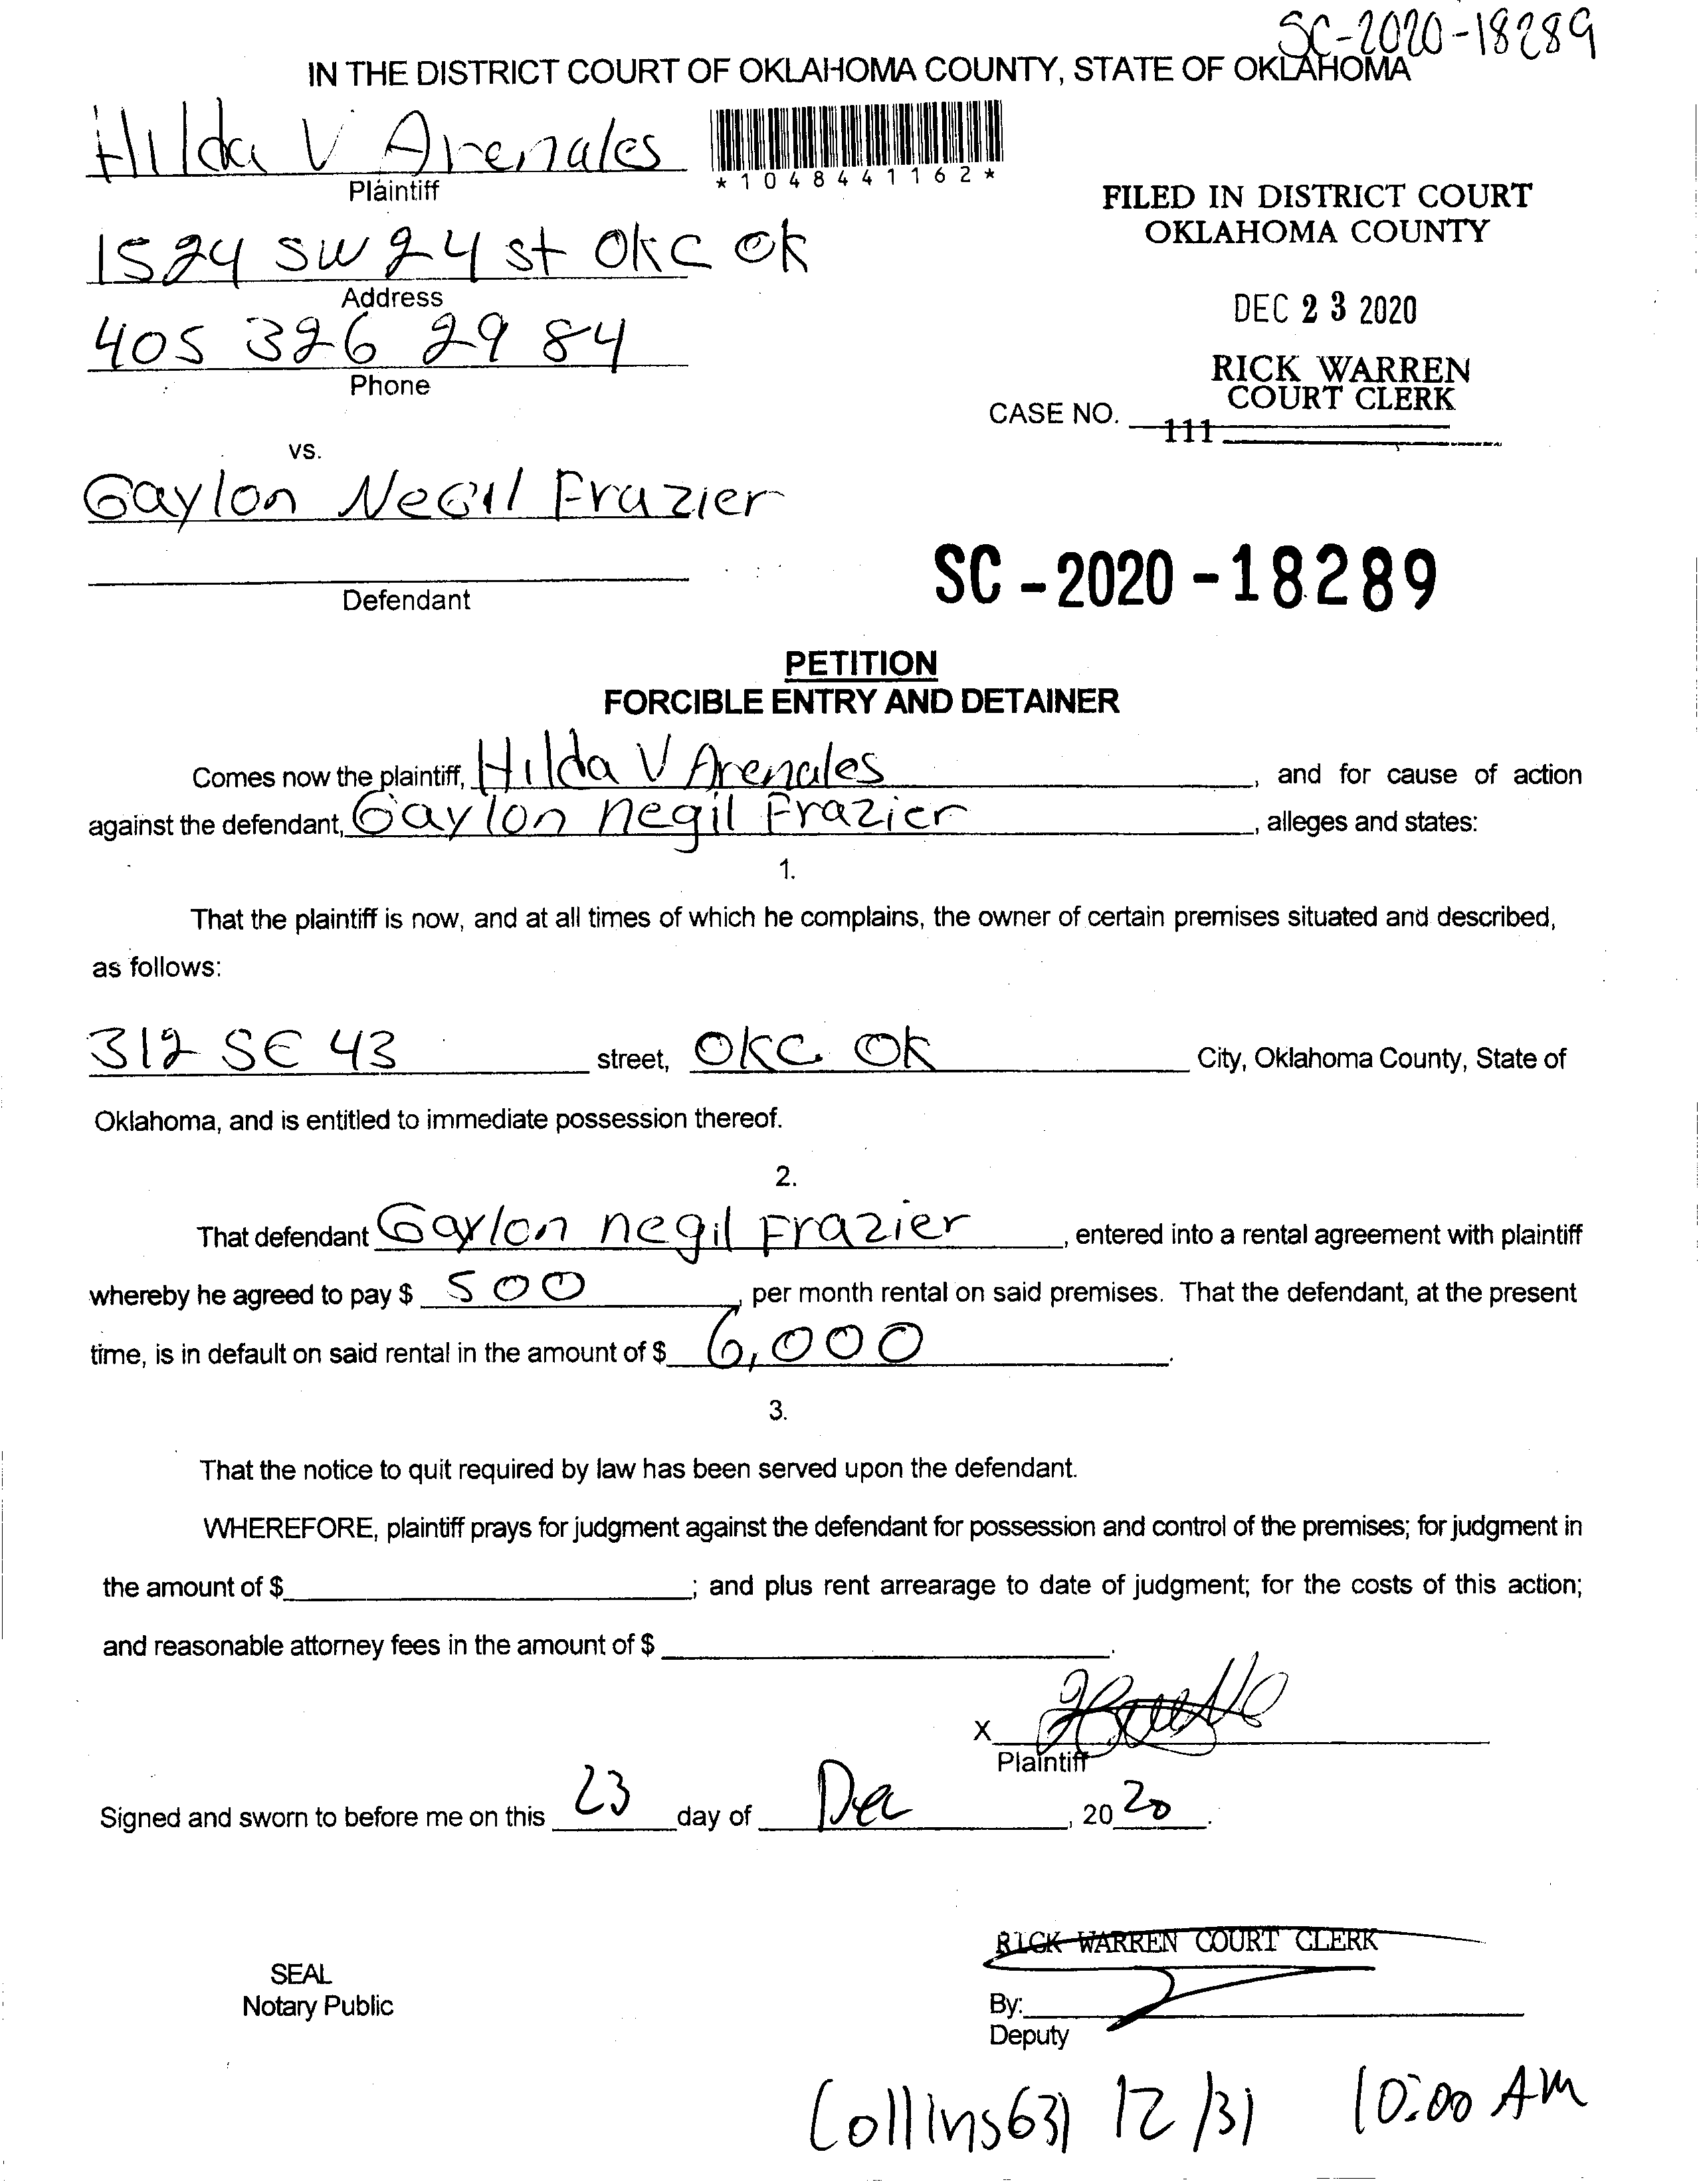 SC-2020-18289
IN THE DISTRICT COURT OF OKLAHOMA COUNTY, STATE OF OKLAHOMA
Hilda V Arenales
Plaintiff
*1048441162*
FILED IN DISTRICT COURT
OKLAHOMA COUNTY
1524 SW 24 st OKC OK
Address
DEC 23 2020
405 326 29 84
Phone
RICK WARREN
COURT CLERK
CASE NO.
111
vs.
Gaylon Negil Frazier
Defendant
SC-2020-18289
PETITION
FORCIBLE ENTRY AND DETAINER
Comes now the plaintiff, Hilda V Arenales, and for cause of action
against the defendant, Gaylon negil Frazier, alleges and states:
1.
That the plaintiff is now, and at all times of which he complains, the owner of certain premises situated and described,
as follows:
312 SE 43 street, OKC OK City, Oklahoma County, State of
Oklahoma, and is entitled to immediate possession thereof.
2.
That defendant Gaylon negil Frazier, entered into a rental agreement with plaintiff
whereby he agreed to pay $ 500, per month rental on said premises. That the defendant, at the present
time, is in default on said rental in the amount of $ 6,000.
3.
That the notice to quit required by law has been served upon the defendant.
WHEREFORE, plaintiff prays for judgment against the defendant for possession and control of the premises; for judgment in
the amount of $; and plus rent arrearage to date of judgment; for the costs of this action;
and reasonable attorney fees in the amount of $.
X
Plaintiff
Signed and sworn to before me on this 23 day of Dec, 2020.
RICK WARREN COURT CLERK
SEAL
Notary Public
By:
Deputy
Collins 631 12/31 10:00 AM